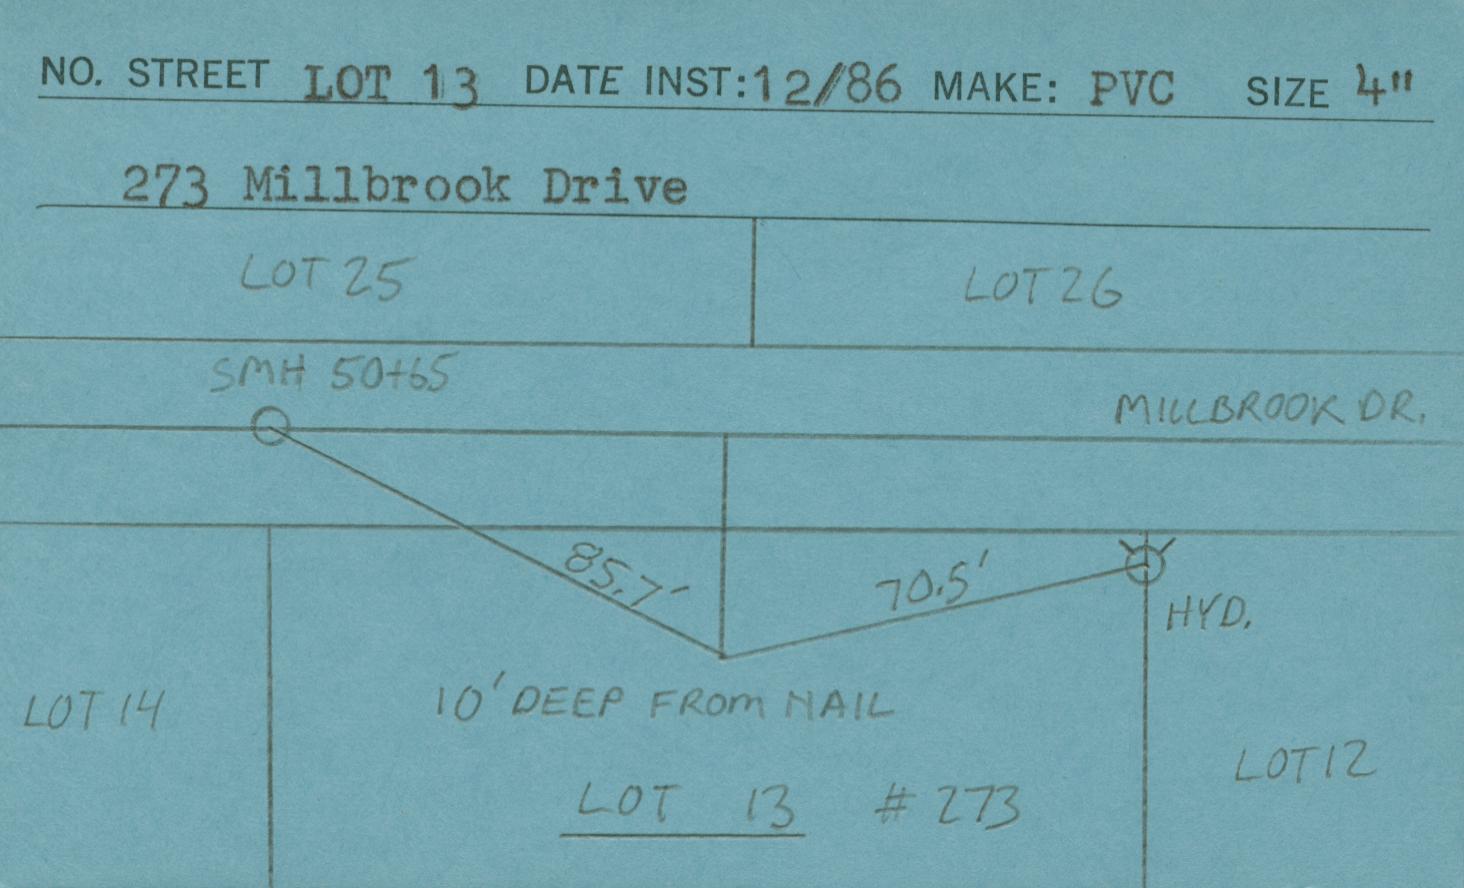 NO. STREET LOT 13 DATE INST: 12/86 MAKE: PVC SIZE 4"
273 Millbrook Drive
LOT 25 LOT 26
SMH 50+65
MILLBROOK DR.
85.7' 70.5'
HYD.
10' DEEP FROM NAIL
LOT 14
LOT 12
LOT 13 #273